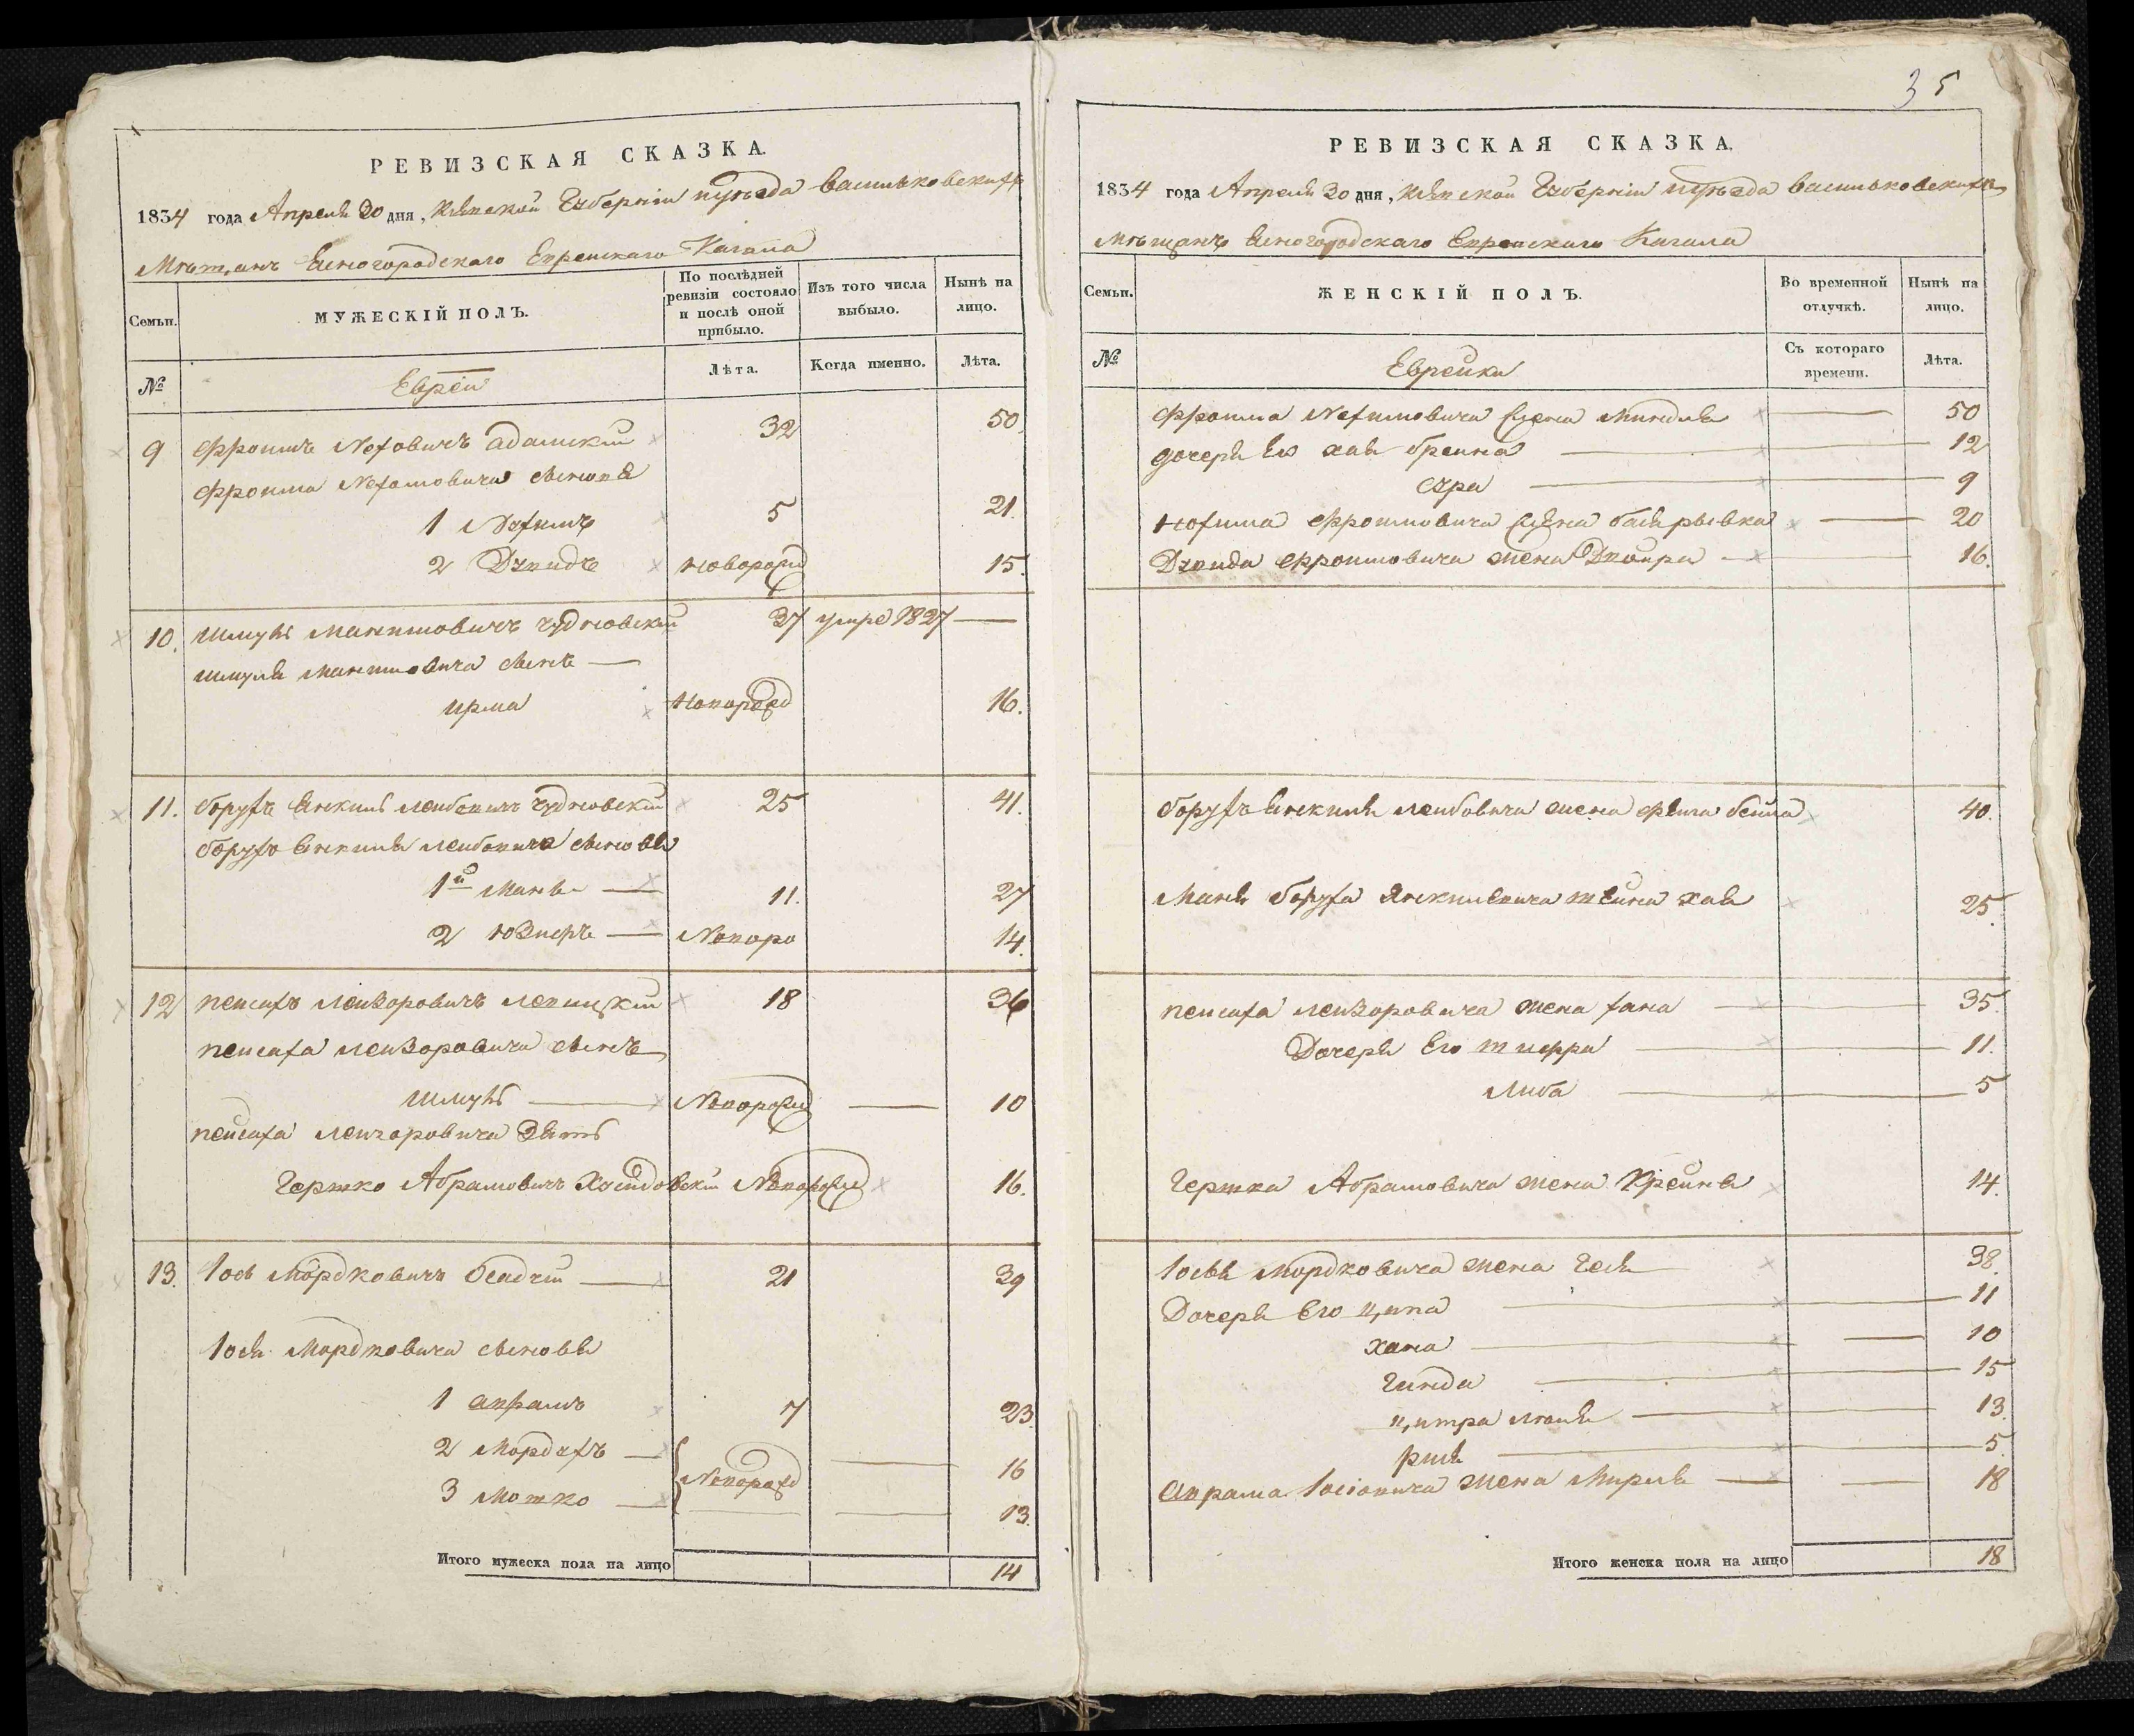 РЕВИЗСКАЯ СКАЗКА.
1834 года Апреля 30 дня, Кіевской Губерніи и уѣзда Васильковскихъ
Мѣщанъ Ясногородскаго Еврейскаго Кагала
Семьи.
МУЖЕСКІЙ ПОЛЪ.
По послѣдней ревизіи состояло и послѣ оной прибыло.
Изъ того числа выбыло.
Нынѣ на лицо.
№
Евреи
Лѣта.
Когда именно.
Лѣта.
9 Фроимъ Адамский 32 50
Фроима сыновья
1 Нухимъ 5 21.
2 Дувидъ новорожд 15.
10. Шмуль Чудновский 37 умре 1827
Шмуля сынъ
Ирма новорожд 16.
11. Борухъ Янкиль Лейбовичъ Чудновский 25 41.
Борухъ Янкиля Лейбовича сыновья
1й Мань 11. 27
2 Новоро 14.
12 Пейсахъ Лейзоровичъ 18 36
Пейсаха Лейзоровича сынъ
Шмуль Новорожд 10
Пейсаха Лейзоровича зять
Гершко Абрамовичъ Новорожд 16.
13. Іось Мордковичъ Осадчий 21 39
Іося Мордковича сыновья
1 Аврамъ 7 23.
2 Мордухъ Новорожд 16
3 Мошко 13.
Итого мужеска пола на лицо 14
35
РЕВИЗСКАЯ СКАЗКА.
1834 года Апреля 30 дня, Кіевской Губерніи и уѣзда Васильковскихъ
Мѣщанъ Ясногородскаго Еврейскаго Кагала
Семьи.
ЖЕНСКІЙ ПОЛЪ.
Во временной отлучкѣ.
Нынѣ на лицо.
№
Еврейки
Съ котораго времени.
Лѣта.
Фроима жена Миндля 50
дочери Его Хая Брейна 12
Сура 9
Нохима Фроимовича жена Бася Рывка 20
Дувида Фроимовича жена Двойра 16.
Борухъ Янкиля Лейбовича жена Фейга Бейла 40.
Маня Боруха Янкилевича жена Хая 25.
Пейсаха Лейзоровича жена Хана 35.
Дочери Его 11.
Либа 5
Гершка Абрамовича жена Крейня 14.
Іося Мордковича жена Геня 38.
Дочери Его Ципа 11
Хана 10
Гинда 15
13.
Рися 5.
Аврама Іосіовича жена Мирля 18
Итого женска пола на лицо 18